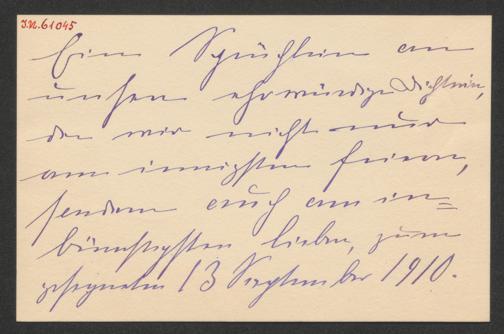 I.N. 61045
Ein Sprüchlein an
unsere ehrwürdige Dichterin,
die wir nicht nur
am innigsten feiern,
sondern auch am in=
brünstigsten lieben, zum
gesegneten 13 September 1910.